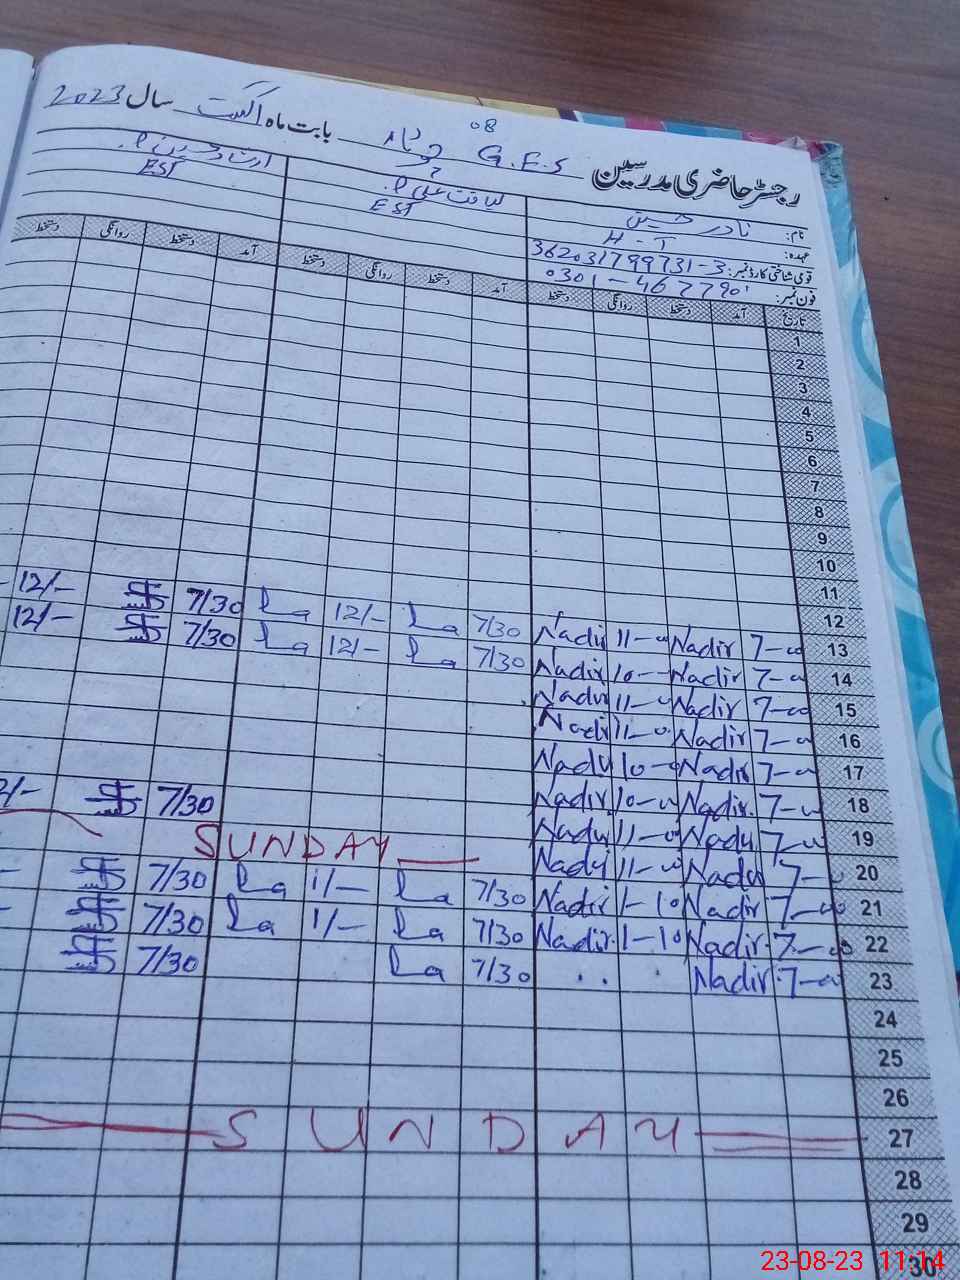 رجسٹر حاضری مدرسین G.E.S بابت ماہ اگست سال 2023
08
نام: نادر حسین لیاقت علی
عہدہ: H-T EST EST
قومی شناختی کارڈ نمبر: 362031799731-3
فون نمبر: 0301-4677901
تاریخ آمد دستخط روانگی دستخط آمد دستخط روانگی دستخط آمد دستخط روانگی دستخط
1
2
3
4
5
6
7
8
9
10
11
12
13 7-00 Nadir 11-00 Nadir 7/30 La 12/- La 7/30 12/-
14 7-00 Nadir 10-- Nadir 7/30 La 12/- La 7/30 12/-
15 7-00 Nadir 11-00 Nadir
16 7-00 Nadir 11-00 Nadir
17 7-00 Nadir 10-00 Nadir
18 7-00 Nadir 10-00 Nadir 7/30
19 7-00 Nadir 11-00 Nadir SUNDAY
20 7-00 Nadir 11-00 Nadir
21 7-00 Nadir 1-10 Nadir 7/30 La 1/- La 7/30
22 7-00 Nadir 1-10 Nadir 7/30 La 1/- La 7/30
23 7-00 Nadir 7/30 La 7/30
24
25
26
27 SUNDAY
28
29
30
23-08-23 11:14